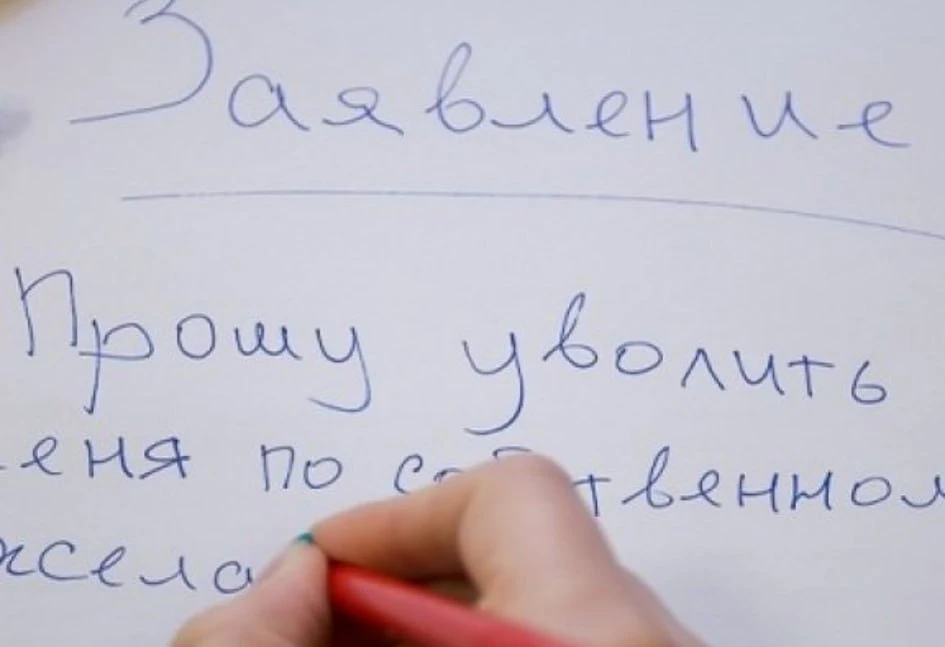 Заявление
Прошу уволить
еня по собственном
жела